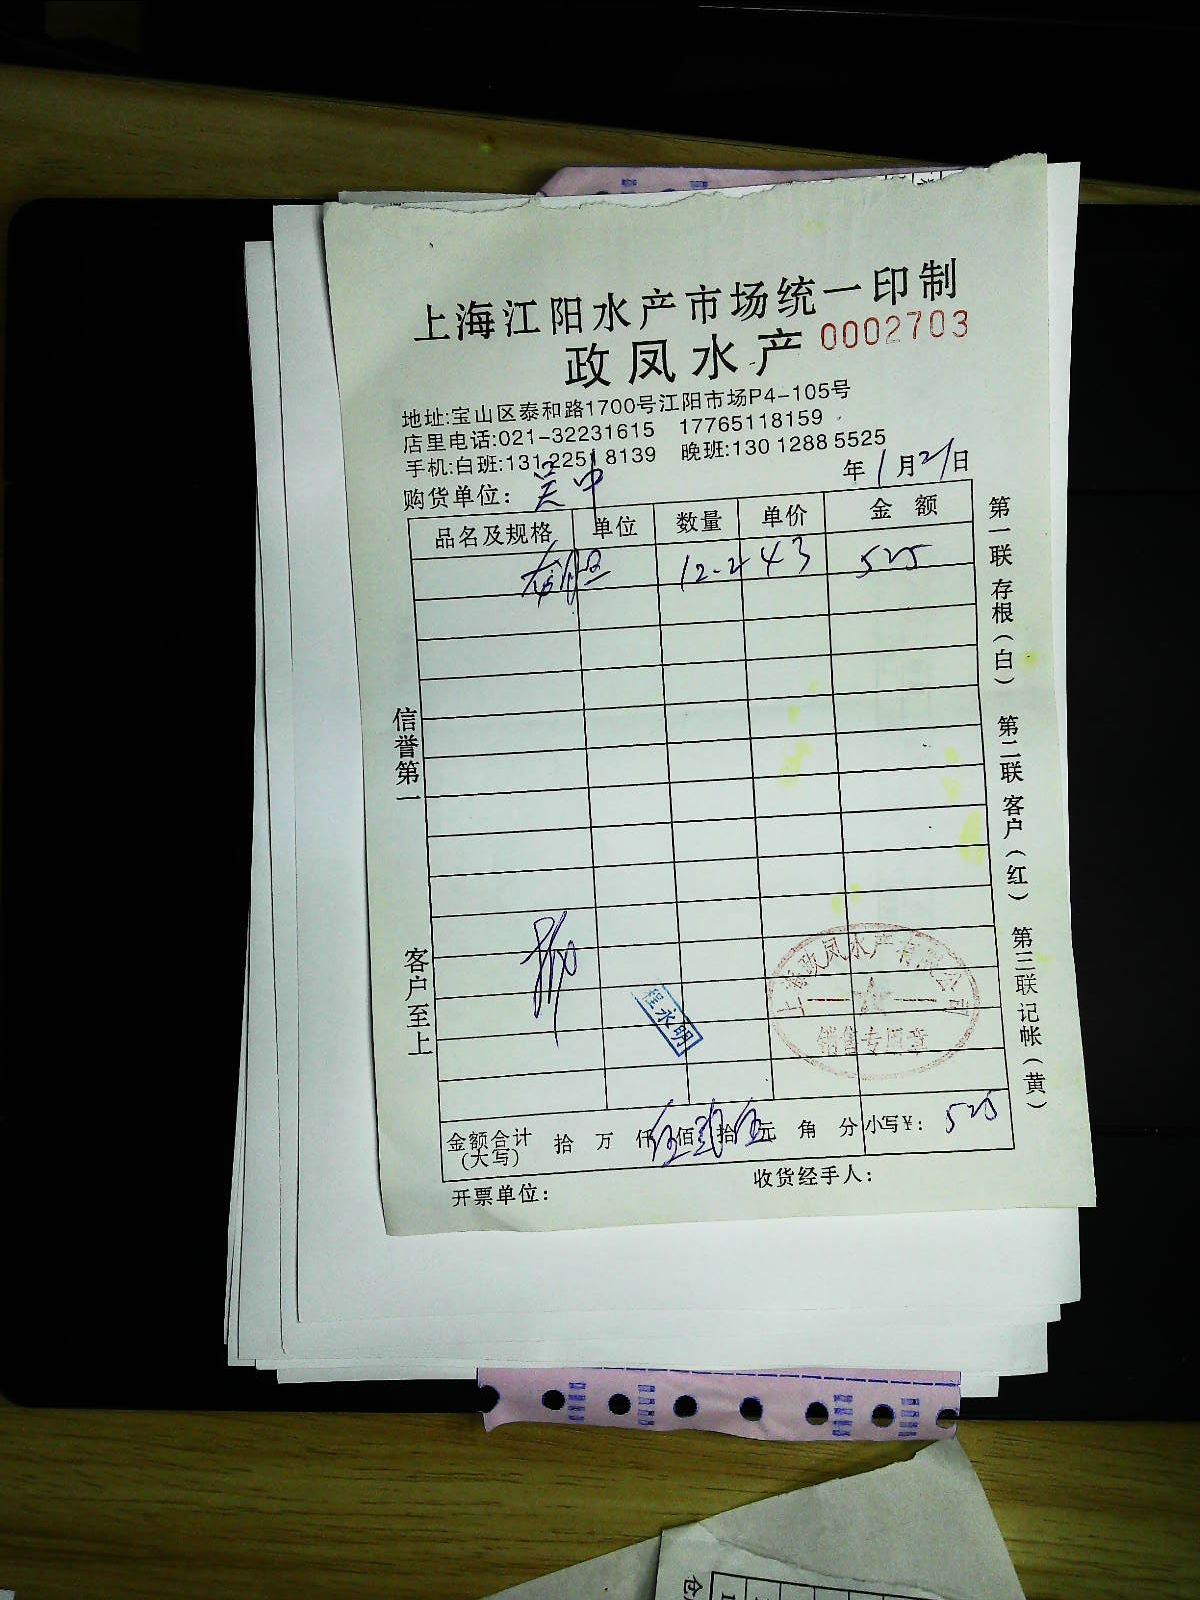 上海江阳水产市场统一印制
政凤水产 0002703
地址:宝山区泰和路1700号江阳市场P4-105号
店里电话:021-32231615 17765118159
手机:白班:131 2251 8139 晚班:130 1288 5525
购货单位: 吴中 年 1月21日
品名及规格 单位 数量 单价 金额
12.2 43 525
信誉第一 客户至上
第一联 存根(白) 第二联 客户(红) 第三联 记帐(黄)
上海政凤水产有限公司
销售专用章
程永明
金额合计(大写) 拾 万 仟 伍佰 贰拾 伍元 角 分 小写¥: 525
开票单位: 收货经手人: